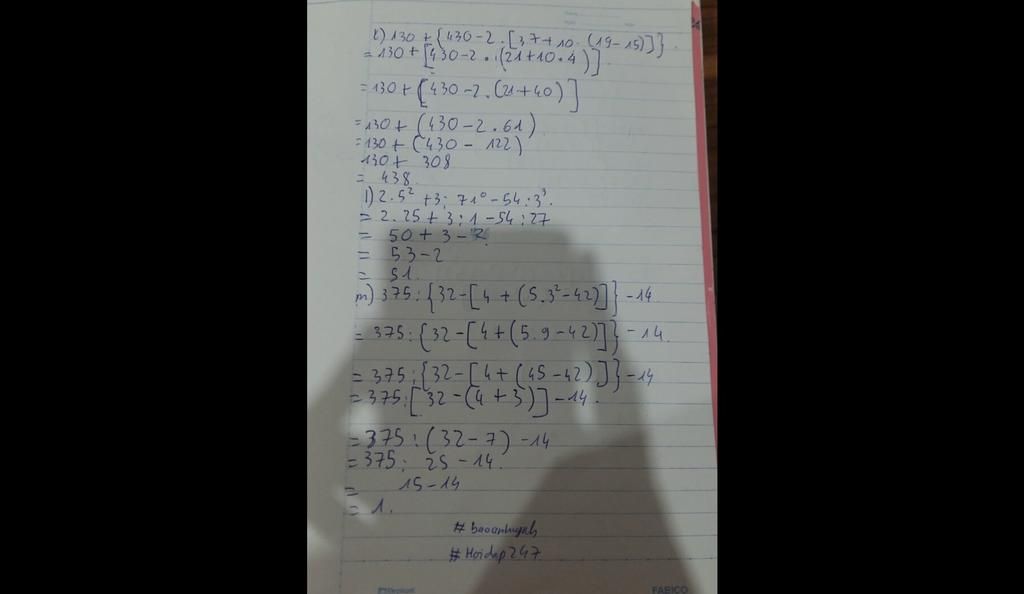 k) 130 + {430 - 2 . [37 + 10 . (19 - 15)]}
= 130 + [430 - 2 . (21 + 10 . 4)]
= 130 + [430 - 2 . (21 + 40)]
= 130 + (430 - 2 . 61)
= 130 + (430 - 122)
130 + 308
= 438.
l) 2.5² + 3 : 71⁰ - 54 : 3³.
= 2.25 + 3 : 1 - 54 : 27
= 50 + 3 - 2.
= 53 - 2
= 51.
m) 375 : {32 - [4 + (5.3² - 42)]} - 14
= 375 : {32 - [4 + (5.9 - 42)]} - 14.
= 375 : {32 - [4 + (45 - 42)]} - 14
= 375 : [32 - (4 + 3)] - 14.
= 375 : (32 - 7) - 14
= 375 : 25 - 14.
= 15 - 14
= 1.
#Hoidap247
FABICO